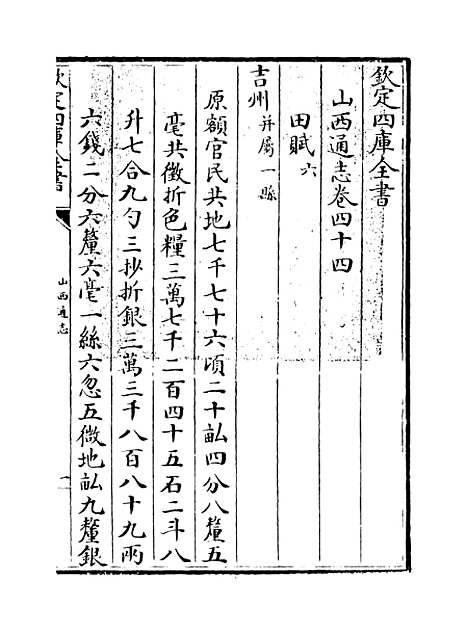 欽定四庫全書
山西通志卷四十四
田賦六
吉州并屬一縣
原額官民共地七千七十六頃二十畝四分八釐五
毫共徵折色糧三萬七千二百四十五石二斗八
升七合九勺三抄折銀三萬三千八百八十九兩
六錢二分六釐六毫一絲六忽五微地畝九釐銀
欽定四庫全書
山西通志
一